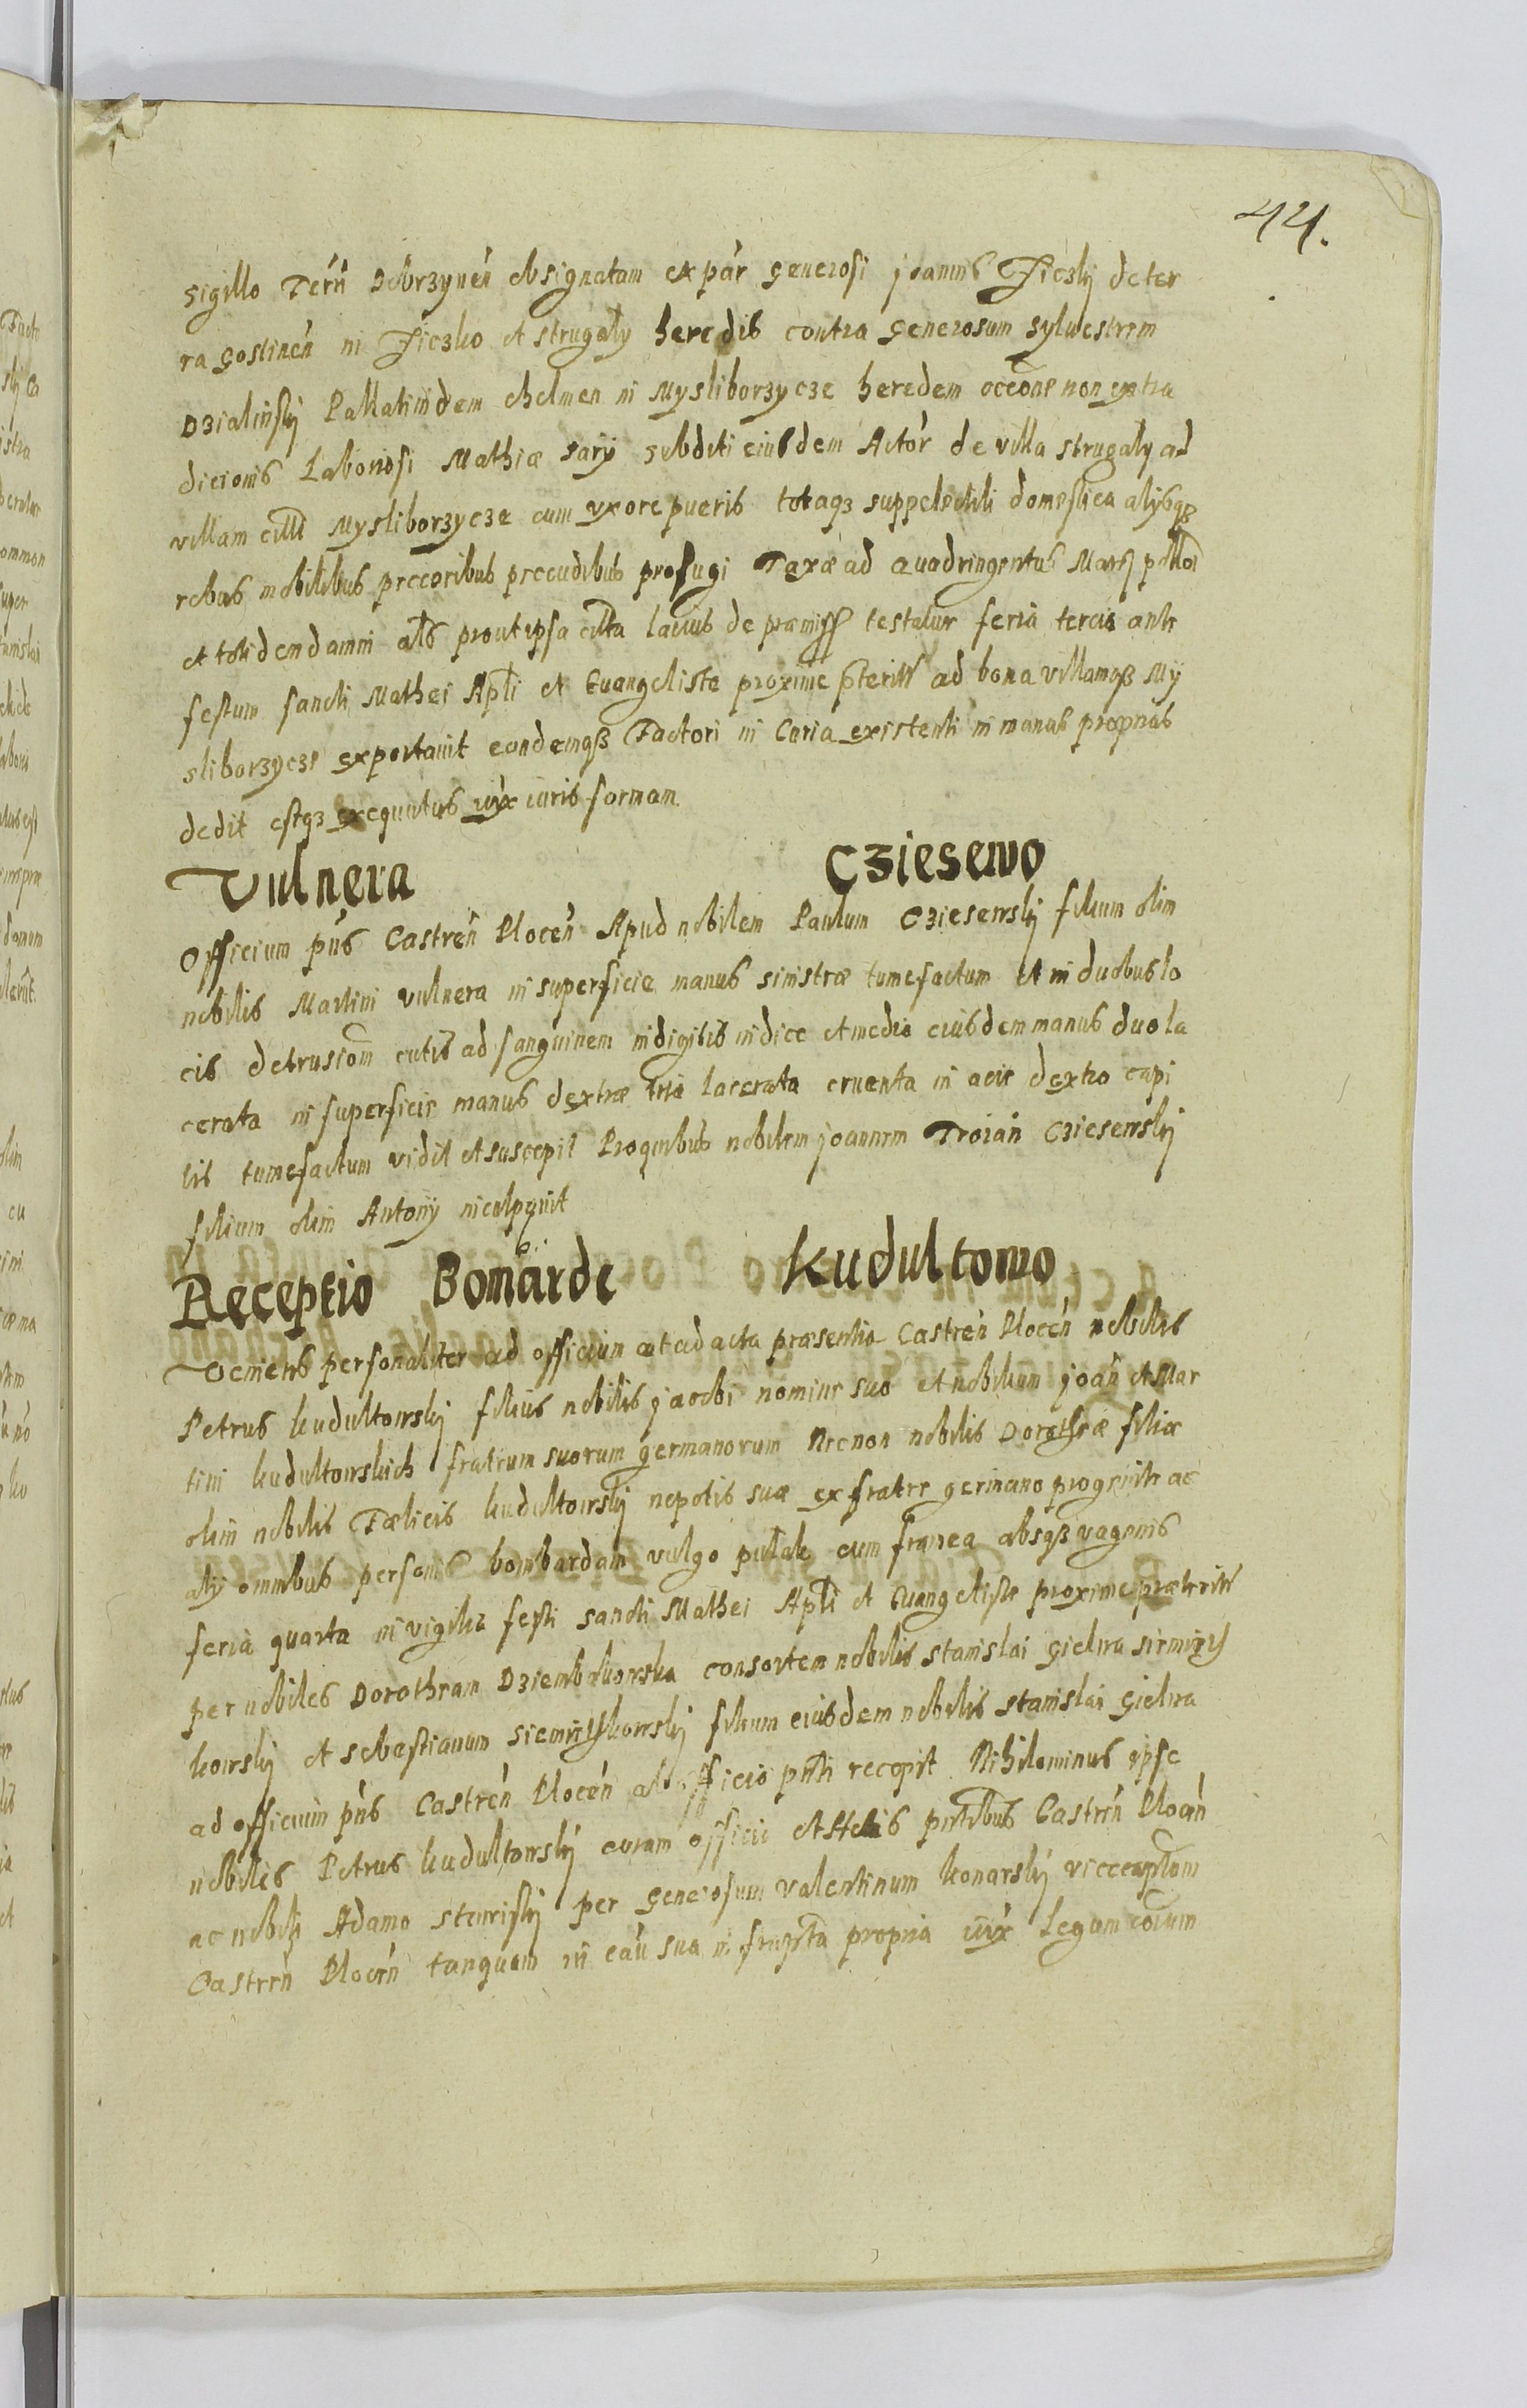 44.
sigillo Terrn Dobrzynen obsignatam ex par generosi joannis Ficzky de ter
ra gostinen in Ficzko et strugaly heredis contra generosum sylwestrem
Dzialinsky Pallatinidem chelmen in Mysliborzycze heredem occone non extra
dicionis Laboriosi Mathiæ sary subditi eiusdem Actor de villa strugaly ad
villam citti Mysliborzycze cum uxore pueris totaqz suppelectili domestica alysqz
rebus mobilibus pecoribus pecudibus profugi Taxæ ad quadringentas Marg
et totidem damni als prout ipsa citta lacius de præmiss testatur feria tercia ante
festum sancti Mathei Apli et Euangeliste proxime pterit ad bona villamqz My
sliborzycze exportauit eandemqz Factori in Curia existenti in manus proprias
dedit estqz exequutus iux iuris formam
Vulnera Cziesewo
Officium pns Castren Plocen Apud nobilem Paulum Cziesewsky filium olim
nobilis Martini vulnera in superficie manus sinistræ tumefactum et in duobus lo
cis detrusiom cutis ad sanguinem in digitis indice et medio eiusdem manus duo la
cerata in superficie manus dextræ tria lacerata cruenta in acie dextro capi
tis tumefactum vidit et suscepit Pro quibus nobilem joannem Troian Cziesewsky
filium olim Antony inculpauit
Receptio Bombarde Kudultowo
Veniens personaliter ad officium et ad acta præsentia Castren Plocen nobilis
Petrus kudultowsky filius nobilis jacobi nomine suo et nobilium joan et Mar
tini kudultowskich fratrum suorum germanorum Necnon nobilis Dorotheæ filiæ
olim nobilis Fælicis kudultowsky nepotis suæ ex fratre germano progenite ac
aly omnibus personis bombardam vulgo pulak cum franea absqz vagonis
feria quarta in vigilia festi sancti Mathei Apli et Euangeliste proxime præterit
per nobiles Dorotheam Dziembakowska consortem nobilis stanislai gielwa
kowsky et sebastianum filium eiusdem nobilis stanislai gielwa
ad officium pns Castren Plocen ab officio pnti recepit Nihilominus ipse
nobilis Petrus kudultowsky coram officio et Actis pntibus Castren Plocen
ac nobili Adamo per generosum valentinum konarsky vicecaptom
Castren Plocen tanquam in cau sua propria iux Legum